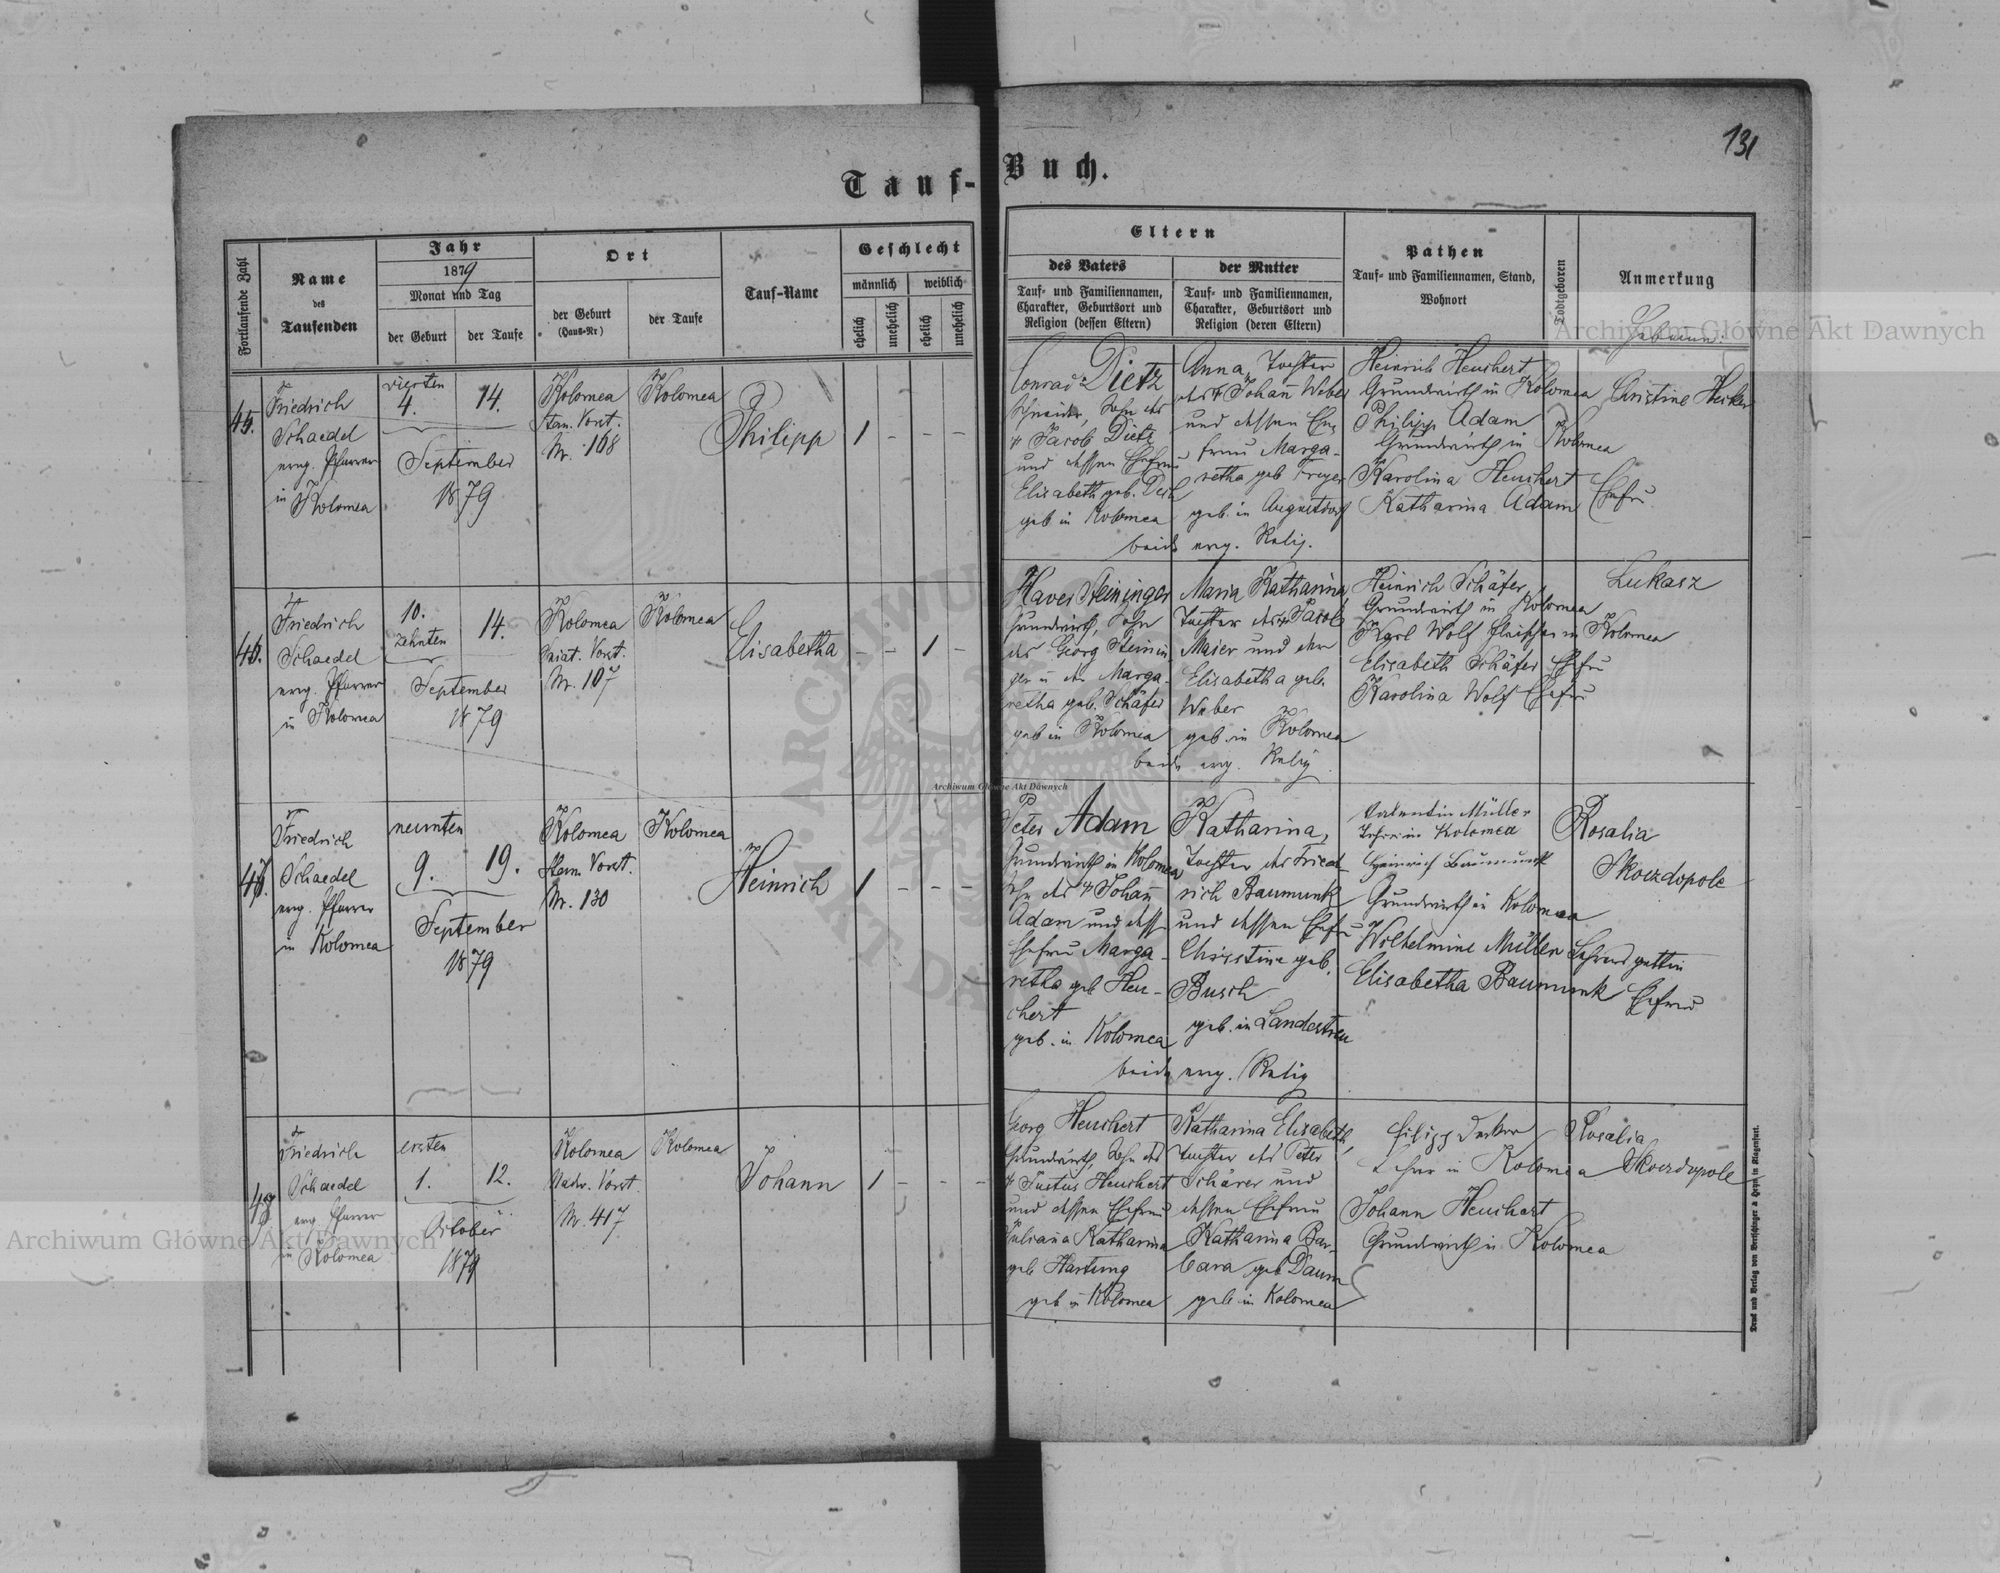 131
Tauf-Buch.
Fortlaufende Zahl
Name
des
Taufenden
Jahr
1879
Monat und Tag
der Geburt
der Taufe
Ort
der Geburt
(Haus-Nr)
der Taufe
Tauf-Name
Geschlecht
männlich
weiblich
ehelich
unehelich
ehelich
unehelich
Eltern
des Vaters
Tauf- und Familiennamen,
Charakter, Geburtsort und
Religion (dessen Eltern)
der Mutter
Tauf- und Familiennamen,
Charakter, Geburtsort und
Religion (deren Eltern)
Pathen
Tauf- und Familiennamen, Stand,
Wohnort
Todtgeboren
Anmerkung
45.
Friedrich
Schaedel
evng. Pfarrer
in Kolomea
vierten
4.
14.
September
1879
Kolomea
Stan. Vorst.
Nr. 168
Kolomea
Philipp
1 - - -
Conrad Dietz
Schneider, Sohn des
† Jacob Dietz
und dessen Ehefrau
Elisabeth geb.
geb in Kolomea
Anna, Tochter
des † Johan̄ Weber
und dessen Ehe
frau Marga-
retha geb Freyer
geb. in Augustdorf
beide evng. Relig.
Heinrich Heuchert
Grundwirth in Kolomea
Philipp Adam
Grundwirth in Kolomea
Karolina Heuchert
Katharina Adam Ehefr̄
Christine Hecker
46.
Friedrich
Schaedel
evng. Pfarrer
in Kolomea
10.
zehnten
14.
September
1879
Kolomea
Sniat. Vorst.
Nr. 107
Kolomea
Elisabetha
- - 1 -
Xaver Steininger
Grundwirth, Sohn
des Georg Steinin
ger u der Marga-
retha geb. Schäfer
geb in Kolomea
Maria Katharina,
Tochter des † Jacob
Maier und der
Elisabetha geb.
Weber
geb. in Kolomea
beide evng. Relig
Heinrich Schäfer
Grundwirth in Kolomea
Karl Wolf Fleischer in Kolomea
Elisabeth Schäfer Ehefr̄
Karolina Wolf Ehefr̄
Lukasz
47.
Friedrich
Schaedel
evng. Pfarrer
in Kolomea
neunten
9.
19.
September
1879
Kolomea
Stan. Vorst.
Nr. 130
Kolomea
Heinrich
1 - - -
Peter Adam
Grundwirth in Kolomea
Sohn des † Johan̄
Adam und dess
Ehefr̄ Marga-
retha geb Heu-
chert
geb. in Kolomea
Katharina,
Tochter des Fried-
rich Baumunk
und dessen Ehefr̄
Christine geb.
Busch
geb. in Landestreu
beide evng. Relig
Valentin Müller
Lehrer in Kolomea
Heinrich Baumunk
Grundwirth in Kolomea
Wilhelmine Müller Lehrersgattin
Elisabetha Baumunk Ehefrau
Rosalia
Skoezdopole
48
Friedrich
Schaedel
evng. Pfarrer
in Kolomea
ersten
1.
12.
October
1879
Kolomea
Nadw. Vorst.
Nr. 417
Kolomea
Johann
1 - - -
Georg Heuchert
Grundwirth, Sohn des
† Justus Heuchert
und dessen Ehefrau
Juliana Katharina
geb Hartung
geb in Kolomea
Katharina Elisabeth,
Tochter des Peter
Schärer und
dessen Ehefrau
Katharina Bar-
bara geb Daum
geb in Kolomea
Filipp Decker
Lehrer in Kolomea
Johann Heuchert
Grundwirth in Kolomea
Rosalia
Skoezdopole
Druck und Verlag von Bertschinger & Heyn in Klagenfurt.
Archiwum Główne Akt Dawnych
Archiwum Główne Akt Dawnych
Archiwum Główne Akt Dawnych